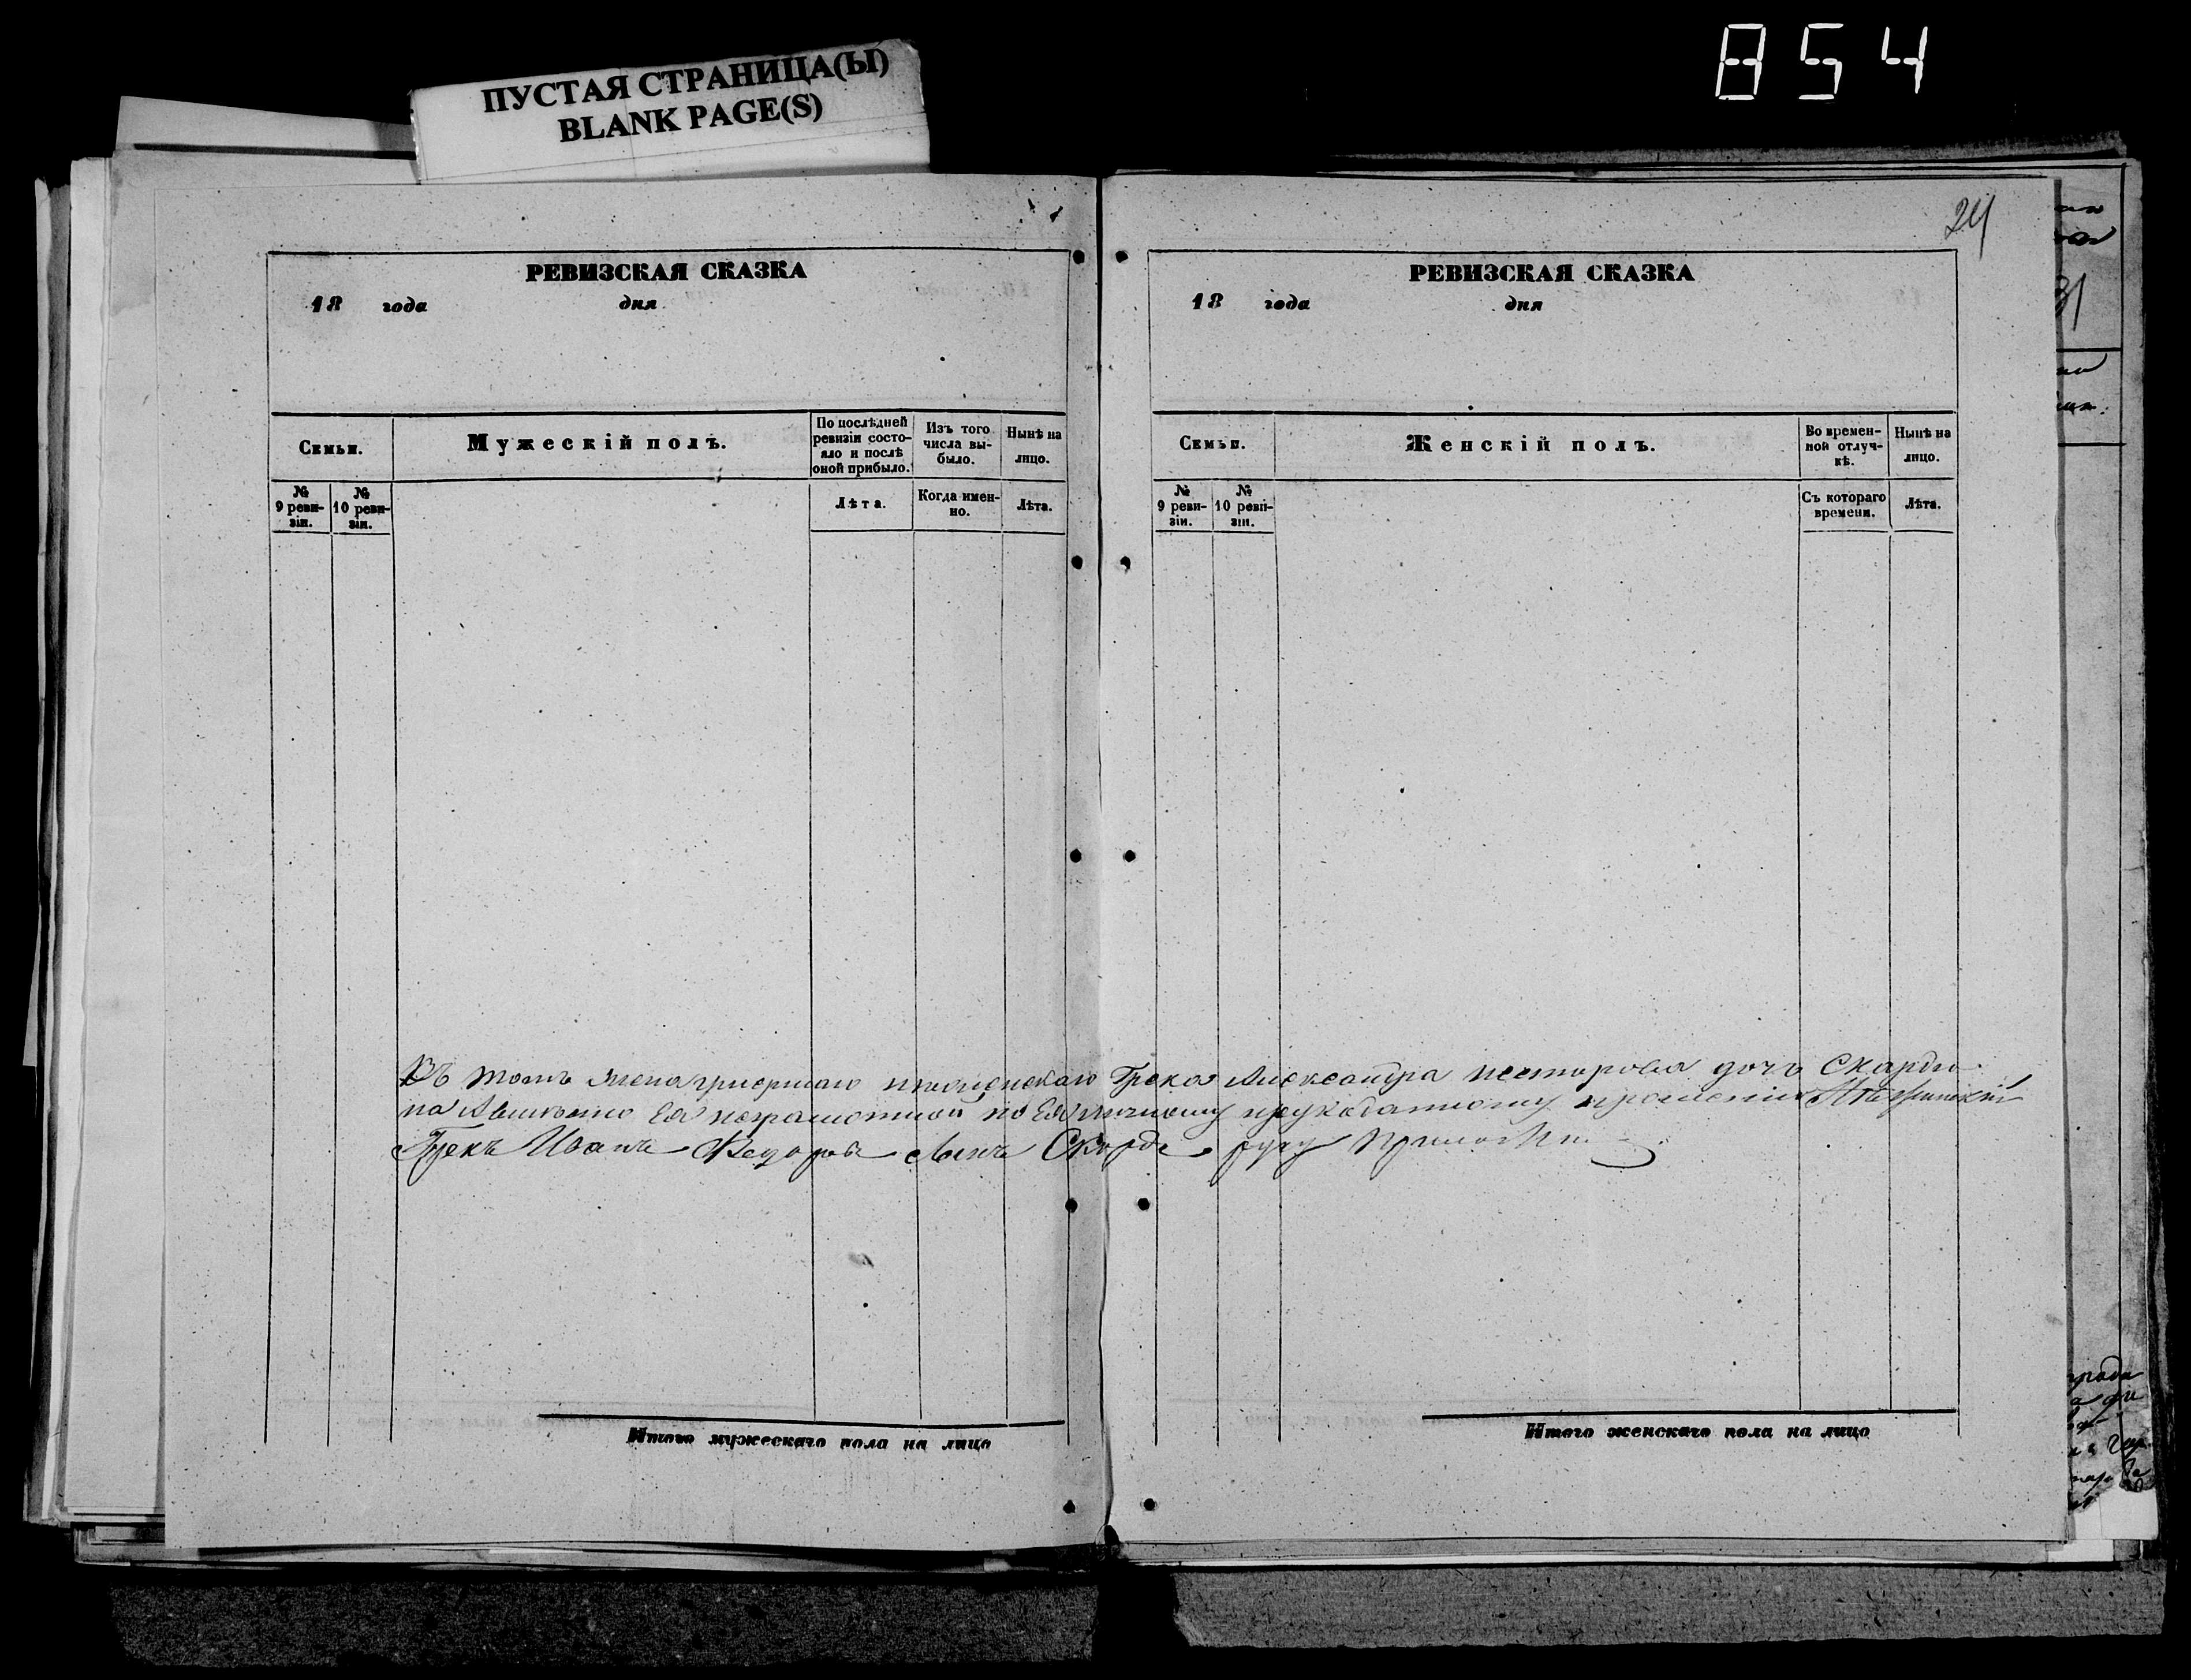 ПУСТАЯ СТРАНИЦА(Ы)
BLANK PAGE(S)
854
24
РЕВИЗСКАЯ СКАЗКА
18 года дня
Семьи.
Мужескій полъ.
По послѣдней ревизіи состояло и послѣ оной прибыло.
Изъ того числа выбыло.
Нынѣ на лицо.
№ 9 ревизіи.
№ 10 ревизіи.
Лѣта.
Когда именно.
Лѣта.
РЕВИЗСКАЯ СКАЗКА
18 года дня
Семьи.
Женскій полъ.
Во временной отлучкѣ.
Нынѣ на лицо.
№ 9 ревизіи.
№ 10 ревизіи.
Съ котораго времени.
Лѣта.
Въ томъ жена Грека Александра Несторова дочь Скарды
по Ея личному прошенію
Грекъ Иванъ Федоровъ сынъ Скорда руку приложилъ
Итого мужескаго пола на лицо
Итого женскаго пола на лицо